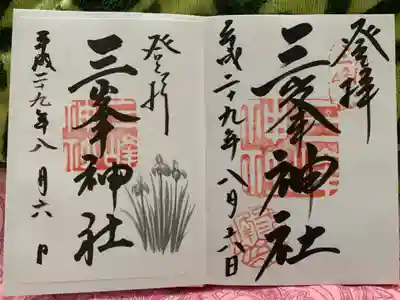 登拝
三峯神社
平成二十九年八月六日
登拝
三峯神社
平成二十九年八月六日